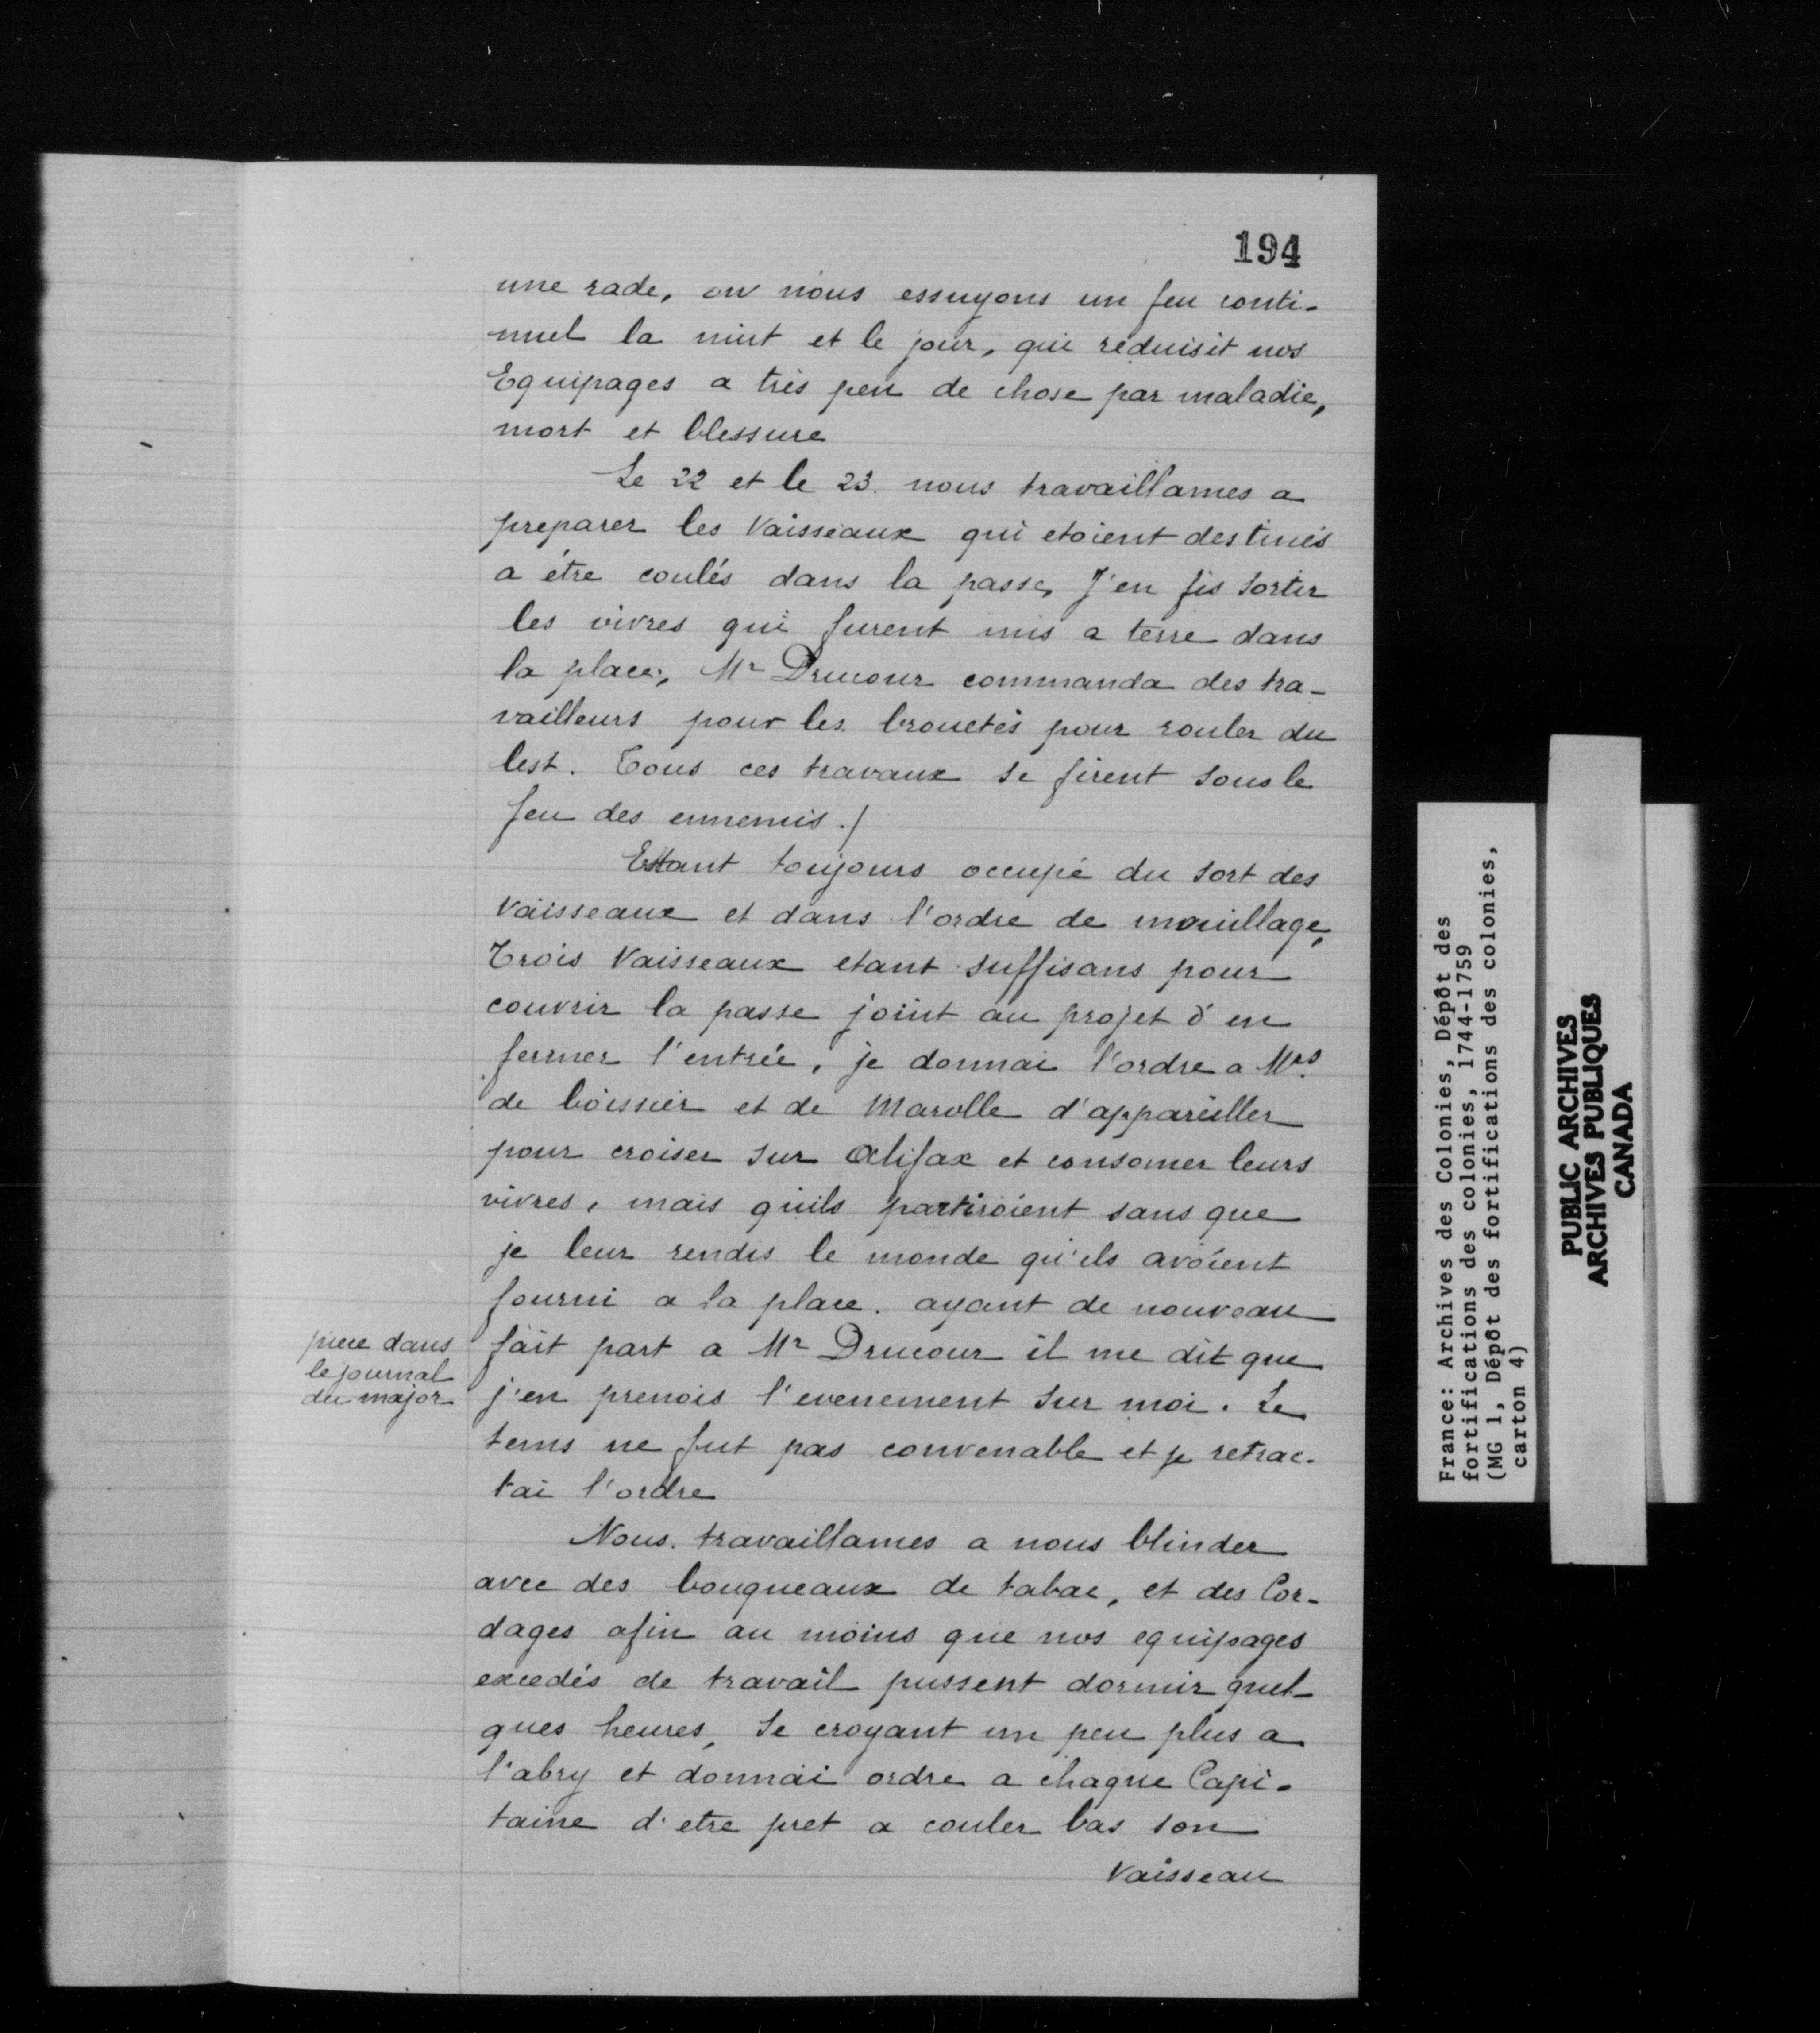 194
une rade, ou nous essuyons un feu conti-
nuel la nuit et le jour, qui réduisit nos
Equipages a très peu de chose par maladie,
mort et blessure
Le 22 et le 23. nous travaillames a
preparer les Vaisseaux qui etoient destinés
a être coulés dans la passe, J'en fis sortir
les vivres qui furent mis a terre dans
la place, Mr Drucour commanda des tra-
vailleurs pour les brouetes pour rouler du
lest. Tous ces travaux se firent sous le
feu des ennemis./
Estant toujours occupé du sort des
Vaisseaux et dans l'ordre de mouillage,
Trois Vaisseaux etant suffisans pour
couvrir la passe joint au projet d'en
fermer l'entrée, je donnai l'ordre a Mrs
de boissier et de Marolle d'appareiller
pour croiser sur Alifax et consomer leurs
vivres, mais quils partiroient sans que
je leur rendis le monde qu'ils avoient
fourni a la place. ayant de nouveau
fait part a Mr Drucour il me dit que
j'en prenois l'evenement sur moi. Le
tems ne fut pas convenable et je retrac-
tai l'ordre
piece dans
le journal
du major
Nous travaillames a nous blinder
avec des bouqueaux de tabac, et des Cor-
dages afin au moins que nos equipages
excedés de travail pussent dormir quel-
ques heures, se croyant un peu plus a
l'abry et donnai ordre a chaque Capi-
taine d'etre pret a couler bas son
Vaisseau
France: Archives des Colonies, Dépôt des
fortifications des colonies, 1744-1759
(MG 1, Dépôt des fortifications des colonies,
carton 4)
PUBLIC ARCHIVES
ARCHIVES PUBLIQUES
CANADA